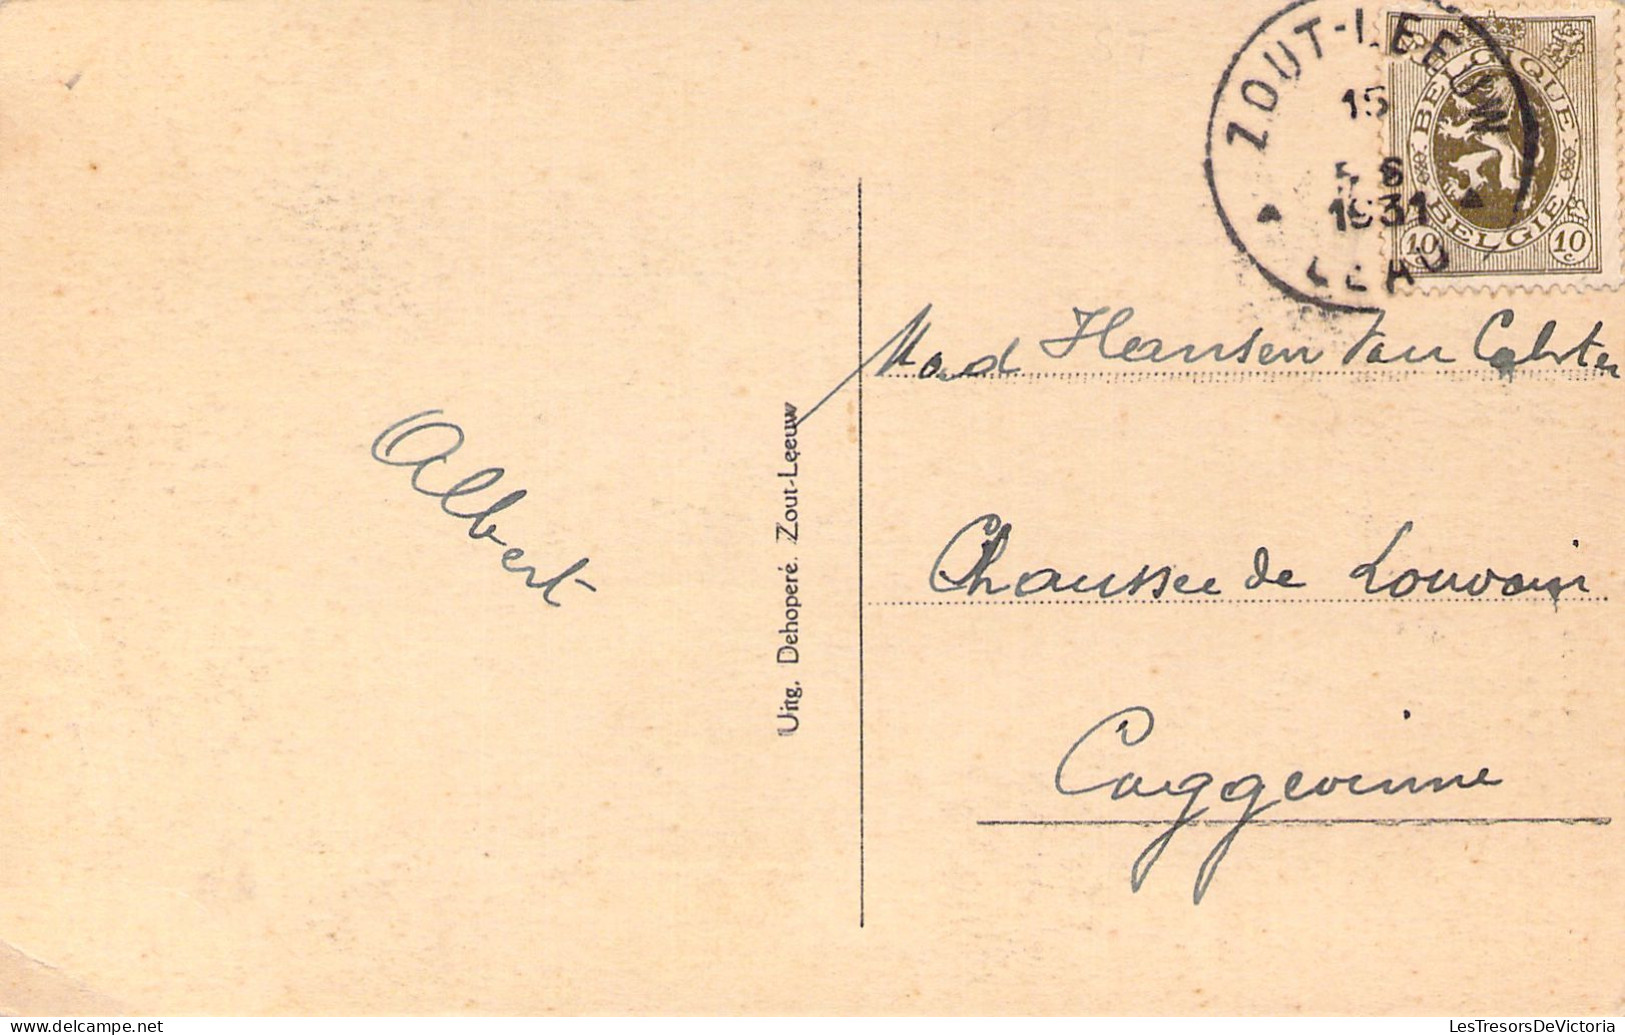 ZOUT-LEEUW
15
5 6
1931
LEAU
BELGIQUE
BELGIE
10c 10c
Mad Hansen Van
Albert
Chaussee de Louvain
Caggevinne
Uitg. Dehoperé. Zout-Leeuw
www.delcampe.net
LesTresorsDeVictoria